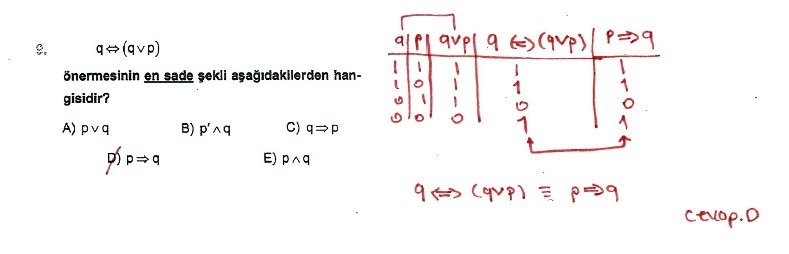 q⇔(q∨p)
önermesinin en sade şekli aşağıdakilerden han-
gisidir?
A) p∨q B) p′∧q C) q⇒p
D) p⇒q E) p∧q
q p q∨p q ⇔ (q∨p) p⇒q
1 1 1 1 1
1 0 1 1 1
0 1 1 0 0
0 0 0 1 1
q⇔(q∨p) ≡ p⇒q
cevap.D